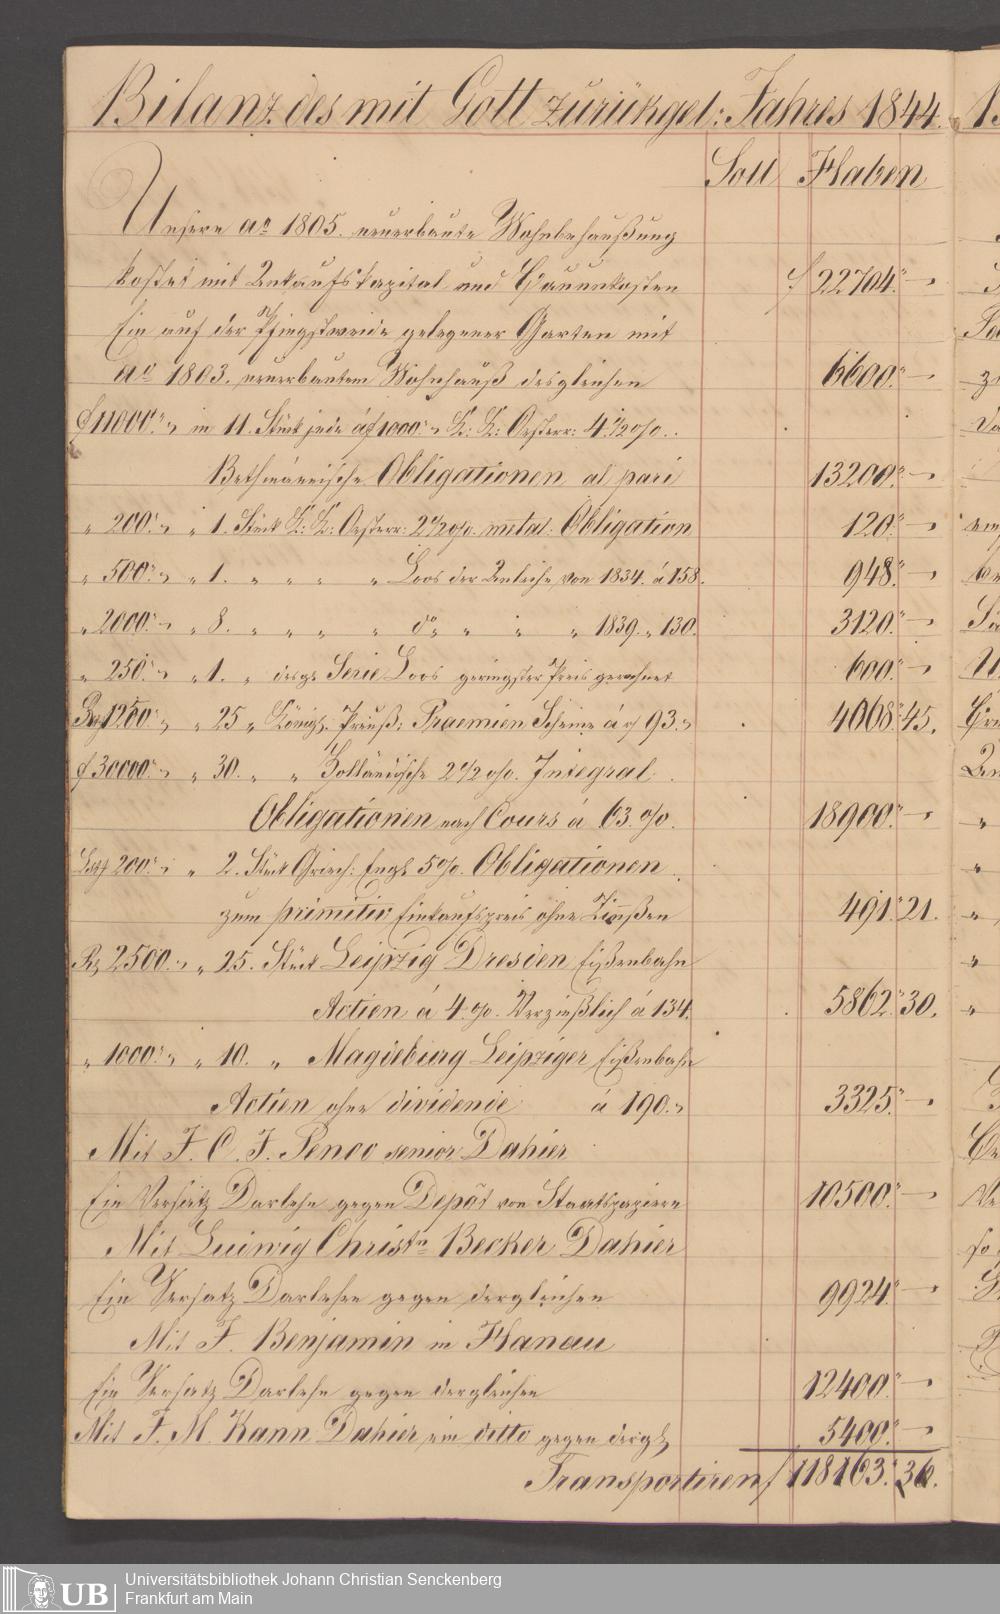 Bilanz des mit Gott zurükgel: Jahres 1844.
Soll Haben
Unsere ao 1805. neuerbaute Wohnbehaußung
kostet mit Ankaufskapital und Bauunkosten f 22704.〃 —
Ein auf der Pfingstweide gelegener Garten mit
ao 1803. neuerbautem Wohnhauß desgleichen 6600.〃 —
f 11000.〃 in 11. Stük jede á f 1000.〃 K: K: Oesterr: 4 1/2 o/o.
Bethmännische Obligationen al pari 13200.〃 —
〃 200.〃 〃 1. Stük K: K: Oesterr: 2 1/2 o/o. metal: Obligation 120.〃 —
〃 500.〃 〃 1. 〃 〃 〃 〃 Loos der Anleihe von 1834. á 158. 948.〃 —
〃 2000.〃 〃 8. 〃 〃 〃 〃 do 〃 〃 〃 1839. 〃 130. 3120.〃 —
〃 250.〃 〃 1. 〃 desgl. Serie Loos geringster Preis gerechnet 600.〃 —
1250.〃 〃 25 〃 Königl. Preuß: Praemien Scheine á 93. 4068.45.
f 30000.〃 〃 30. 〃 〃 Holländische 2 1/2 o/o. Integral
Obligationen nach Cours á 63. o/o. 18900.〃 —
200.〃 〃 2. Stük Griech: Engl. 5 o/o. Obligationen
zum primitiv Einkaufspreis ohne Zinßen 491.21.
2500.〃 〃 25. Stük Leipzig Dresden Eißenbahn
Actien á 4. o/o. Verzinßlich á 134. 5862.30.
〃 1000.〃 〃 10. 〃 Magdeburg Leipziger Eißenbahn
Actien ohne dividende á 190. 3325.〃 —
Mit J. C. J. senior Dahier
Ein Versatz Darlehn gegen Depôt von Staatspapiere 10500.〃 —
Mit Ludwig Christn Becker Dahier
Ein Versatz Darlehen gegen dergleichen 9924.〃 —
Mit J. Benjamin in Hanau
Ein Versatz Darlehn gegen dergleichen 12400.〃 —
Mit J. M. Kann Dahier, ein ditto gegen dergl. 5400.〃 —
Transportiren f 118163.36.
UB
Universitätsbibliothek Johann Christian Senckenberg
Frankfurt am Main